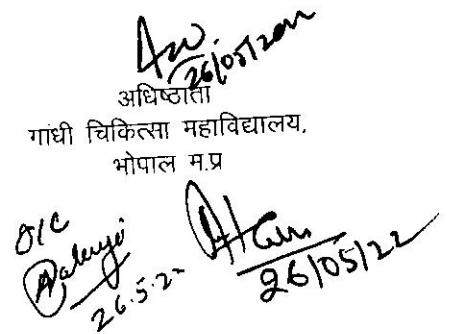 26/05/2022
अधिष्ठाता
गांधी चिकित्सा महाविद्यालय,
भोपाल म.प्र
O/C
26.5.22
26/05/22